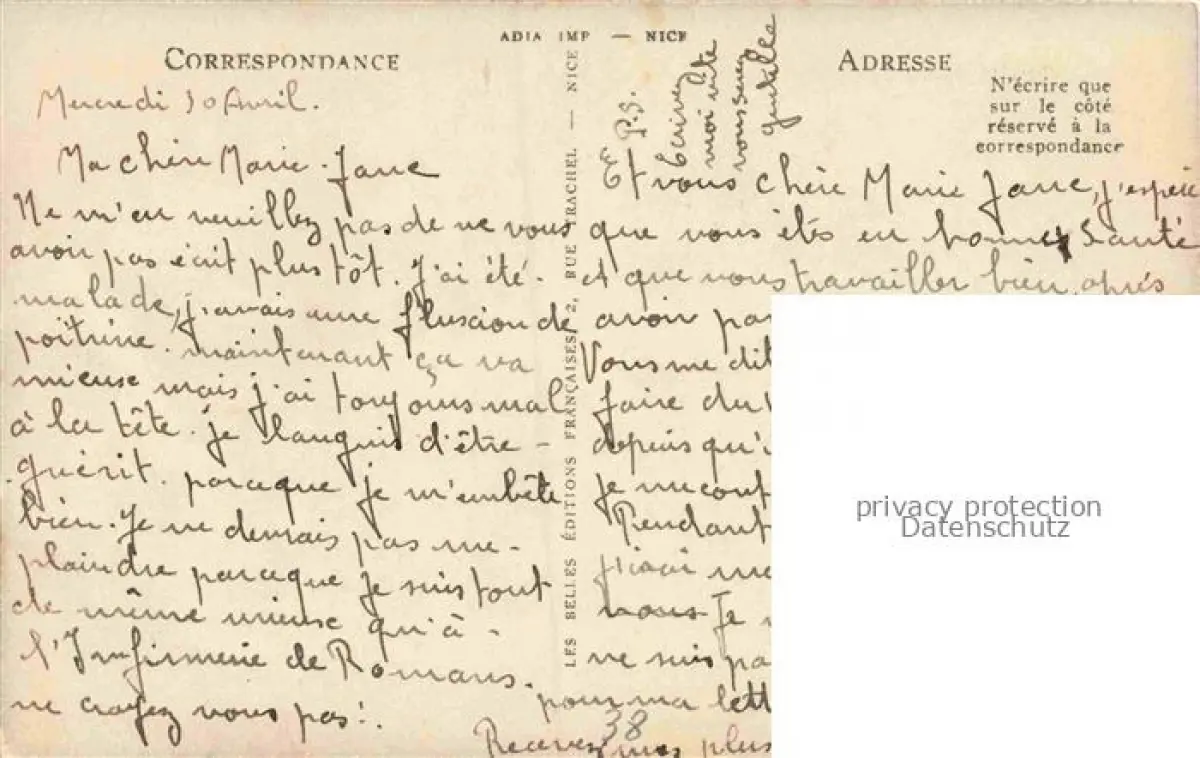 ADIA IMP — NICE
CORRESPONDANCE
Mercredi 30 Avril.
Ma chère Marie-Jane
Ne m'en veuillez pas de ne vous
avoir pas écrit plus tôt. J'ai été
malade, j'avais une fluscion de
poitrine. maintenant ça va
mieuse mais j'ai toujours mal
à la tête. je languis d'être -
guérit. parceque je m'embête
bien. Je ne devrais pas me -
plaindre parceque je suis tout
de même mieuse qu'à -
l'Infirmerie de Romans.
ne croyez vous pas!.
LES BELLES ÉDITIONS FRANÇAISES, 2, RUE TRACHEL — NICE
ADRESSE
N'écrire que
sur le côté
réservé à la
correspondance
P.S.
Ecrivez
moi vite
vous serez
gentille
Et vous chère Marie Jane, j'espère
que vous êtes en bonne Santé
et que vous travailler bien, après
avoir
Vous me
faire du
depuis qu'
Je me
Pendant
j'irai
nous Je
ne suis
pour ma
Recevez mes plus
38
privacy protection
Datenschutz